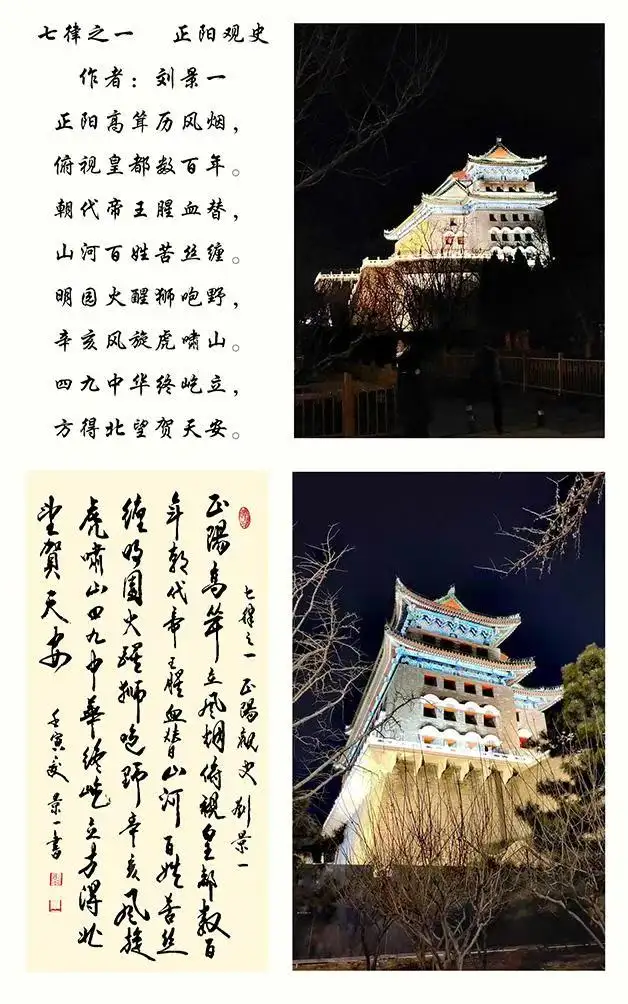 七律之一 正阳观史
作者：刘景一
正阳高耸历风烟，
俯视皇都数百年。
朝代帝王腥血替，
山河百姓苦丝缠。
明园火醒狮咆野，
辛亥风旋虎啸山。
四九中华终屹立，
方得北望贺天安。
七律之一 正陽觀史 刘景一
正陽高耸立风烟俯視皇都数百
年朝代帝王腥血替山河百姓苦丝
缠明園火醒狮咆野辛亥风旋
虎啸山四九中华终屹立方得北
望賀天安
壬寅 景一书